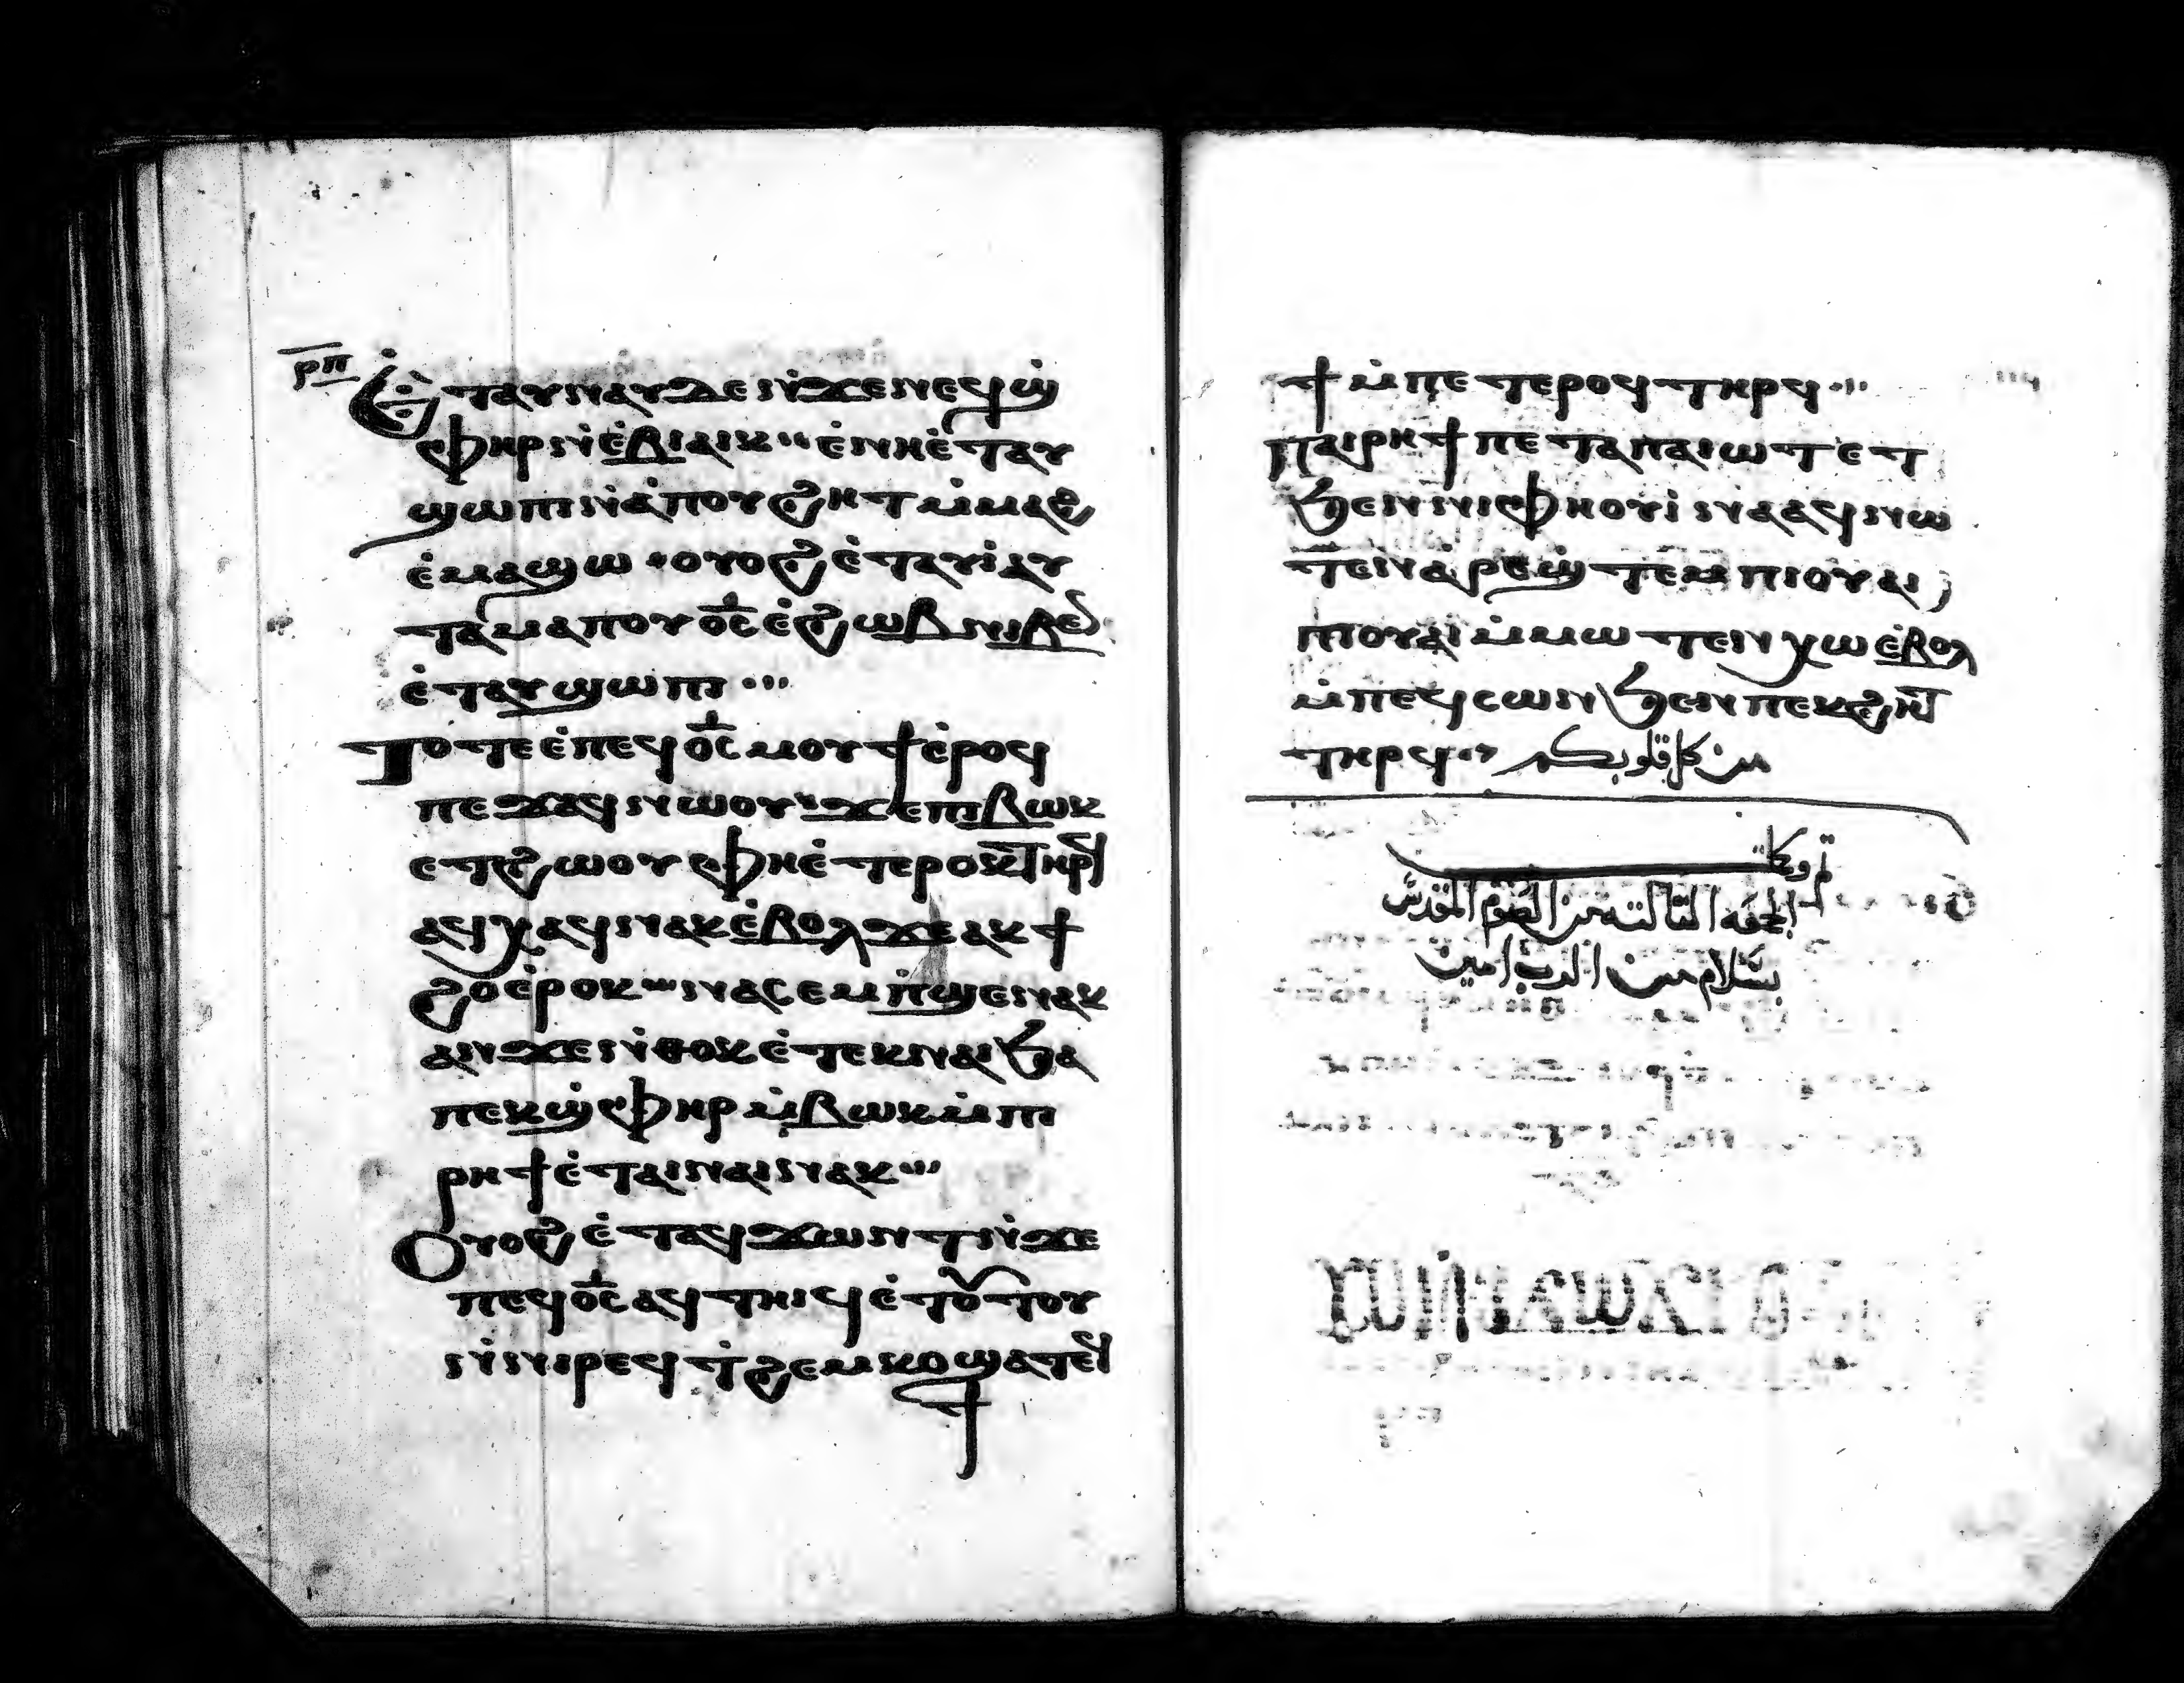 ⲣ̅ⲡ̅
Ⲉ̀ⲧⲁⲩⲛⲁⲩⲇⲉⲛ̀ϫⲉⲛⲉϥϣ̀
ⲫⲏⲣⲛ̀ⲉ̀ⲃⲓⲁⲓⲕ ⲉ̀ⲛⲏⲉ̀ⲧⲁⲩ
ϣⲱⲡⲓⲛⲁ̀ⲡⲟⲩϩⲏⲧⲙ̀ⲙⲁϩ
ⲉ̀ⲙⲁϣⲱ ⲟⲩⲟϩⲉ̀ⲧⲁⲩⲓ̀ⲁⲩ
ⲧⲁⲙⲁⲡⲟⲩⲟ̅ⲥ̅ⲉ̀ϩⲱⲃⲛⲓⲃⲉⲛ
ⲉ̀ⲧⲁⲩϣⲱⲡⲓ
Ⲧⲟⲧⲉⲉ̀ⲡⲉϥⲟ̅ⲥ̅ⲙⲟⲩϯⲉ̀ⲣⲟϥ
ⲡⲉϫⲁϥⲛⲱⲟⲩ ϫⲉⲡⲓⲃⲱⲕ
ⲉⲧϩⲱⲟⲩ ⲫⲏⲉ̀ⲧⲉⲣⲟⲕⲧⲏⲣϥ
ⲁϥⲭⲁϥⲛⲁⲕⲉ̀ⲃⲟⲗϫⲉⲁⲕϯ
ϩⲟⲉ̀ⲣⲟⲕ ⲛⲁⲥⲉⲙⲡ̀ϣⲉⲛⲁⲕ
ⲁⲛϫⲉⲛ̀ⲑⲟⲕⲉ̀ⲧⲉⲕⲛⲁⲓϧⲁ
ⲡⲉⲕϣ̀ⲫⲏⲣⲙ̀ⲃⲱⲕⲙ̀ⲡⲓ
ⲣⲏϯⲉ̀ⲧⲁⲓⲛⲁⲓⲛⲁⲕ
Ⲟⲩⲟϩⲉ̀ⲧⲁϥϫⲱⲛⲧⲛ̀ϫⲉ
ⲡⲉϥⲟ̅ⲥ̅ⲁϥⲧⲏⲓϥⲉ̀ⲧⲟⲧⲟⲩ
ⲛ̀ⲛⲓⲣⲉϥⲧ̀ϩⲉⲙⲕⲟϣⲁⲧⲉϥ
ϯ
ϯⲙ̀ⲡⲉⲧⲉⲣⲟϥⲧⲏⲣϥ
Ⲡⲁⲓⲣⲏϯⲡⲉⲧⲁⲡⲁⲓⲱⲧⲉⲧ
ϧⲉⲛⲛⲓⲫⲏⲟⲩⲓ̀ⲛⲁⲁϥⲛⲱ
ⲧⲉⲛⲁ̀ⲣⲉϣ̀ⲧⲉⲙⲡⲓⲟⲩⲁⲓ
ⲡⲓⲟⲩⲁⲓⲙ̀ⲙⲱⲧⲉⲛⲭⲱⲉ̀ⲃⲟⲗ
ⲙ̀ⲡⲉϥⲥⲱⲛϧⲉⲛⲡⲉⲕϩⲏⲧ
ⲧⲏⲣϥ من كل قلوبكم
تم وكملت
الجمعه الثالثه من الصوم المقدس
بسلام من الرب امين